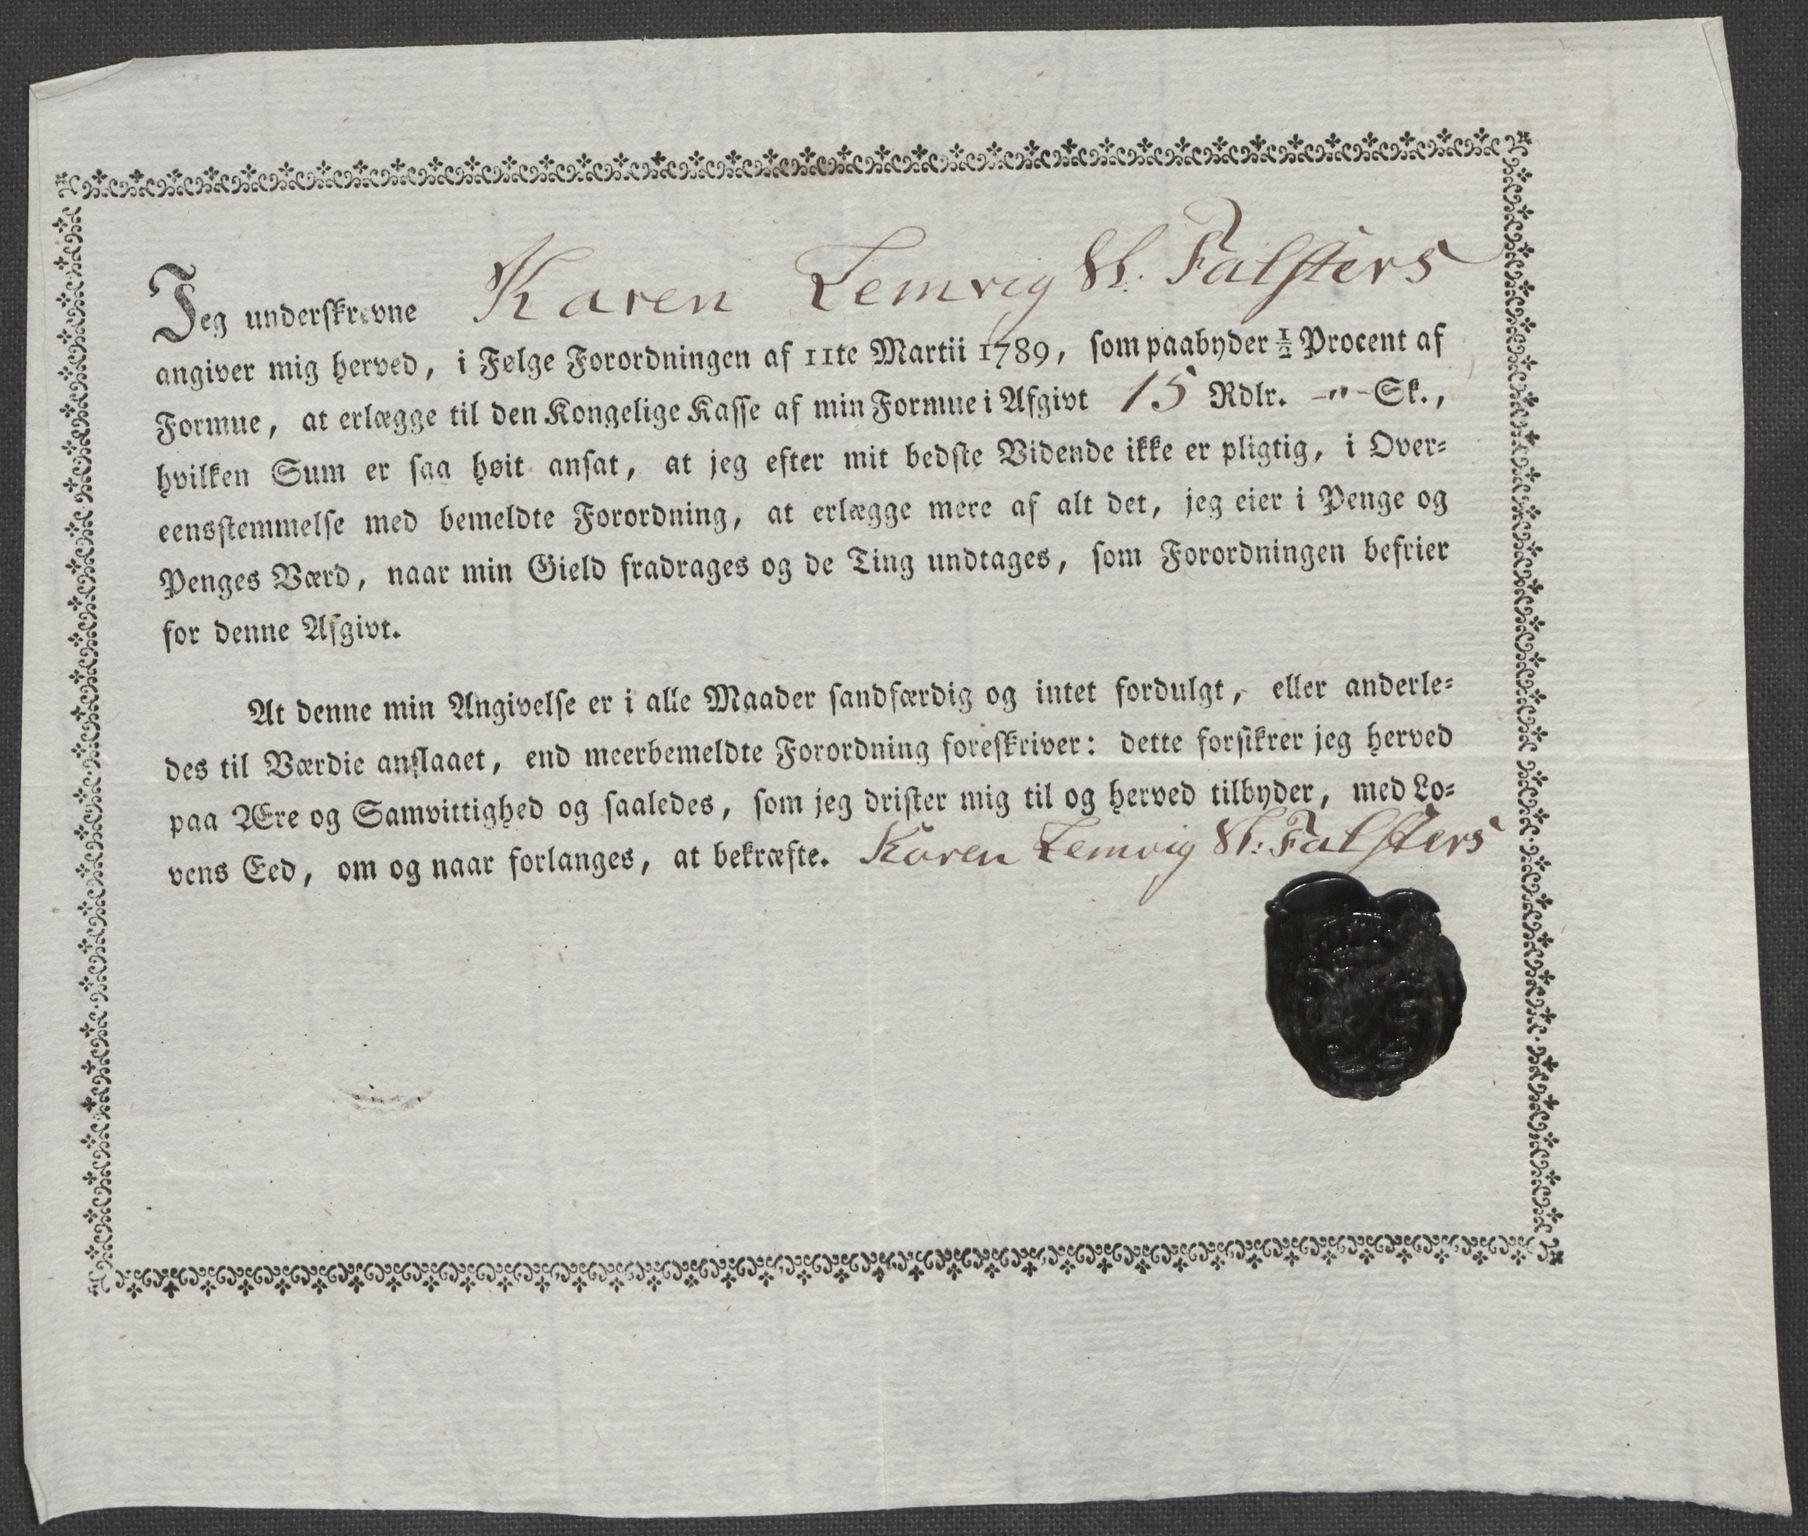 Jeg underskrevne Karen Lemvig Sl. Falsters
angiver mig herved, i Følge Forordningen af 11te Martii 1789, som paabyder ½ Procent af
Formue, at erlægge til den Kongelige Kasse af min Formue i Afgivt 15 Rdlr. -"- Sk.,
hvilken Sum er saa høit ansat, at jeg efter mit bedste Vidende ikke er pligtig, i Over-
eensstemmelse med bemeldte Forordning, at erlægge mere af alt det, jeg eier i Penge og
Penges Værd, naar min Gield fradrages og de Ting undtages, som Forordningen befrier
for denne Afgivt.
At denne min Angivelse er i alle Maader sandfærdig og intet fordulgt, eller anderle-
des til Værdie anslaaet, end meerbemeldte Forordning foreskriver: dette forsikrer jeg herved
paa Ære og Samvittighed og saaledes, som jeg drister mig til og herved tilbyder, med Lo-
vens Eed, om og naar forlanges, at bekræfte. Karen Lemvig Sl: Falsters